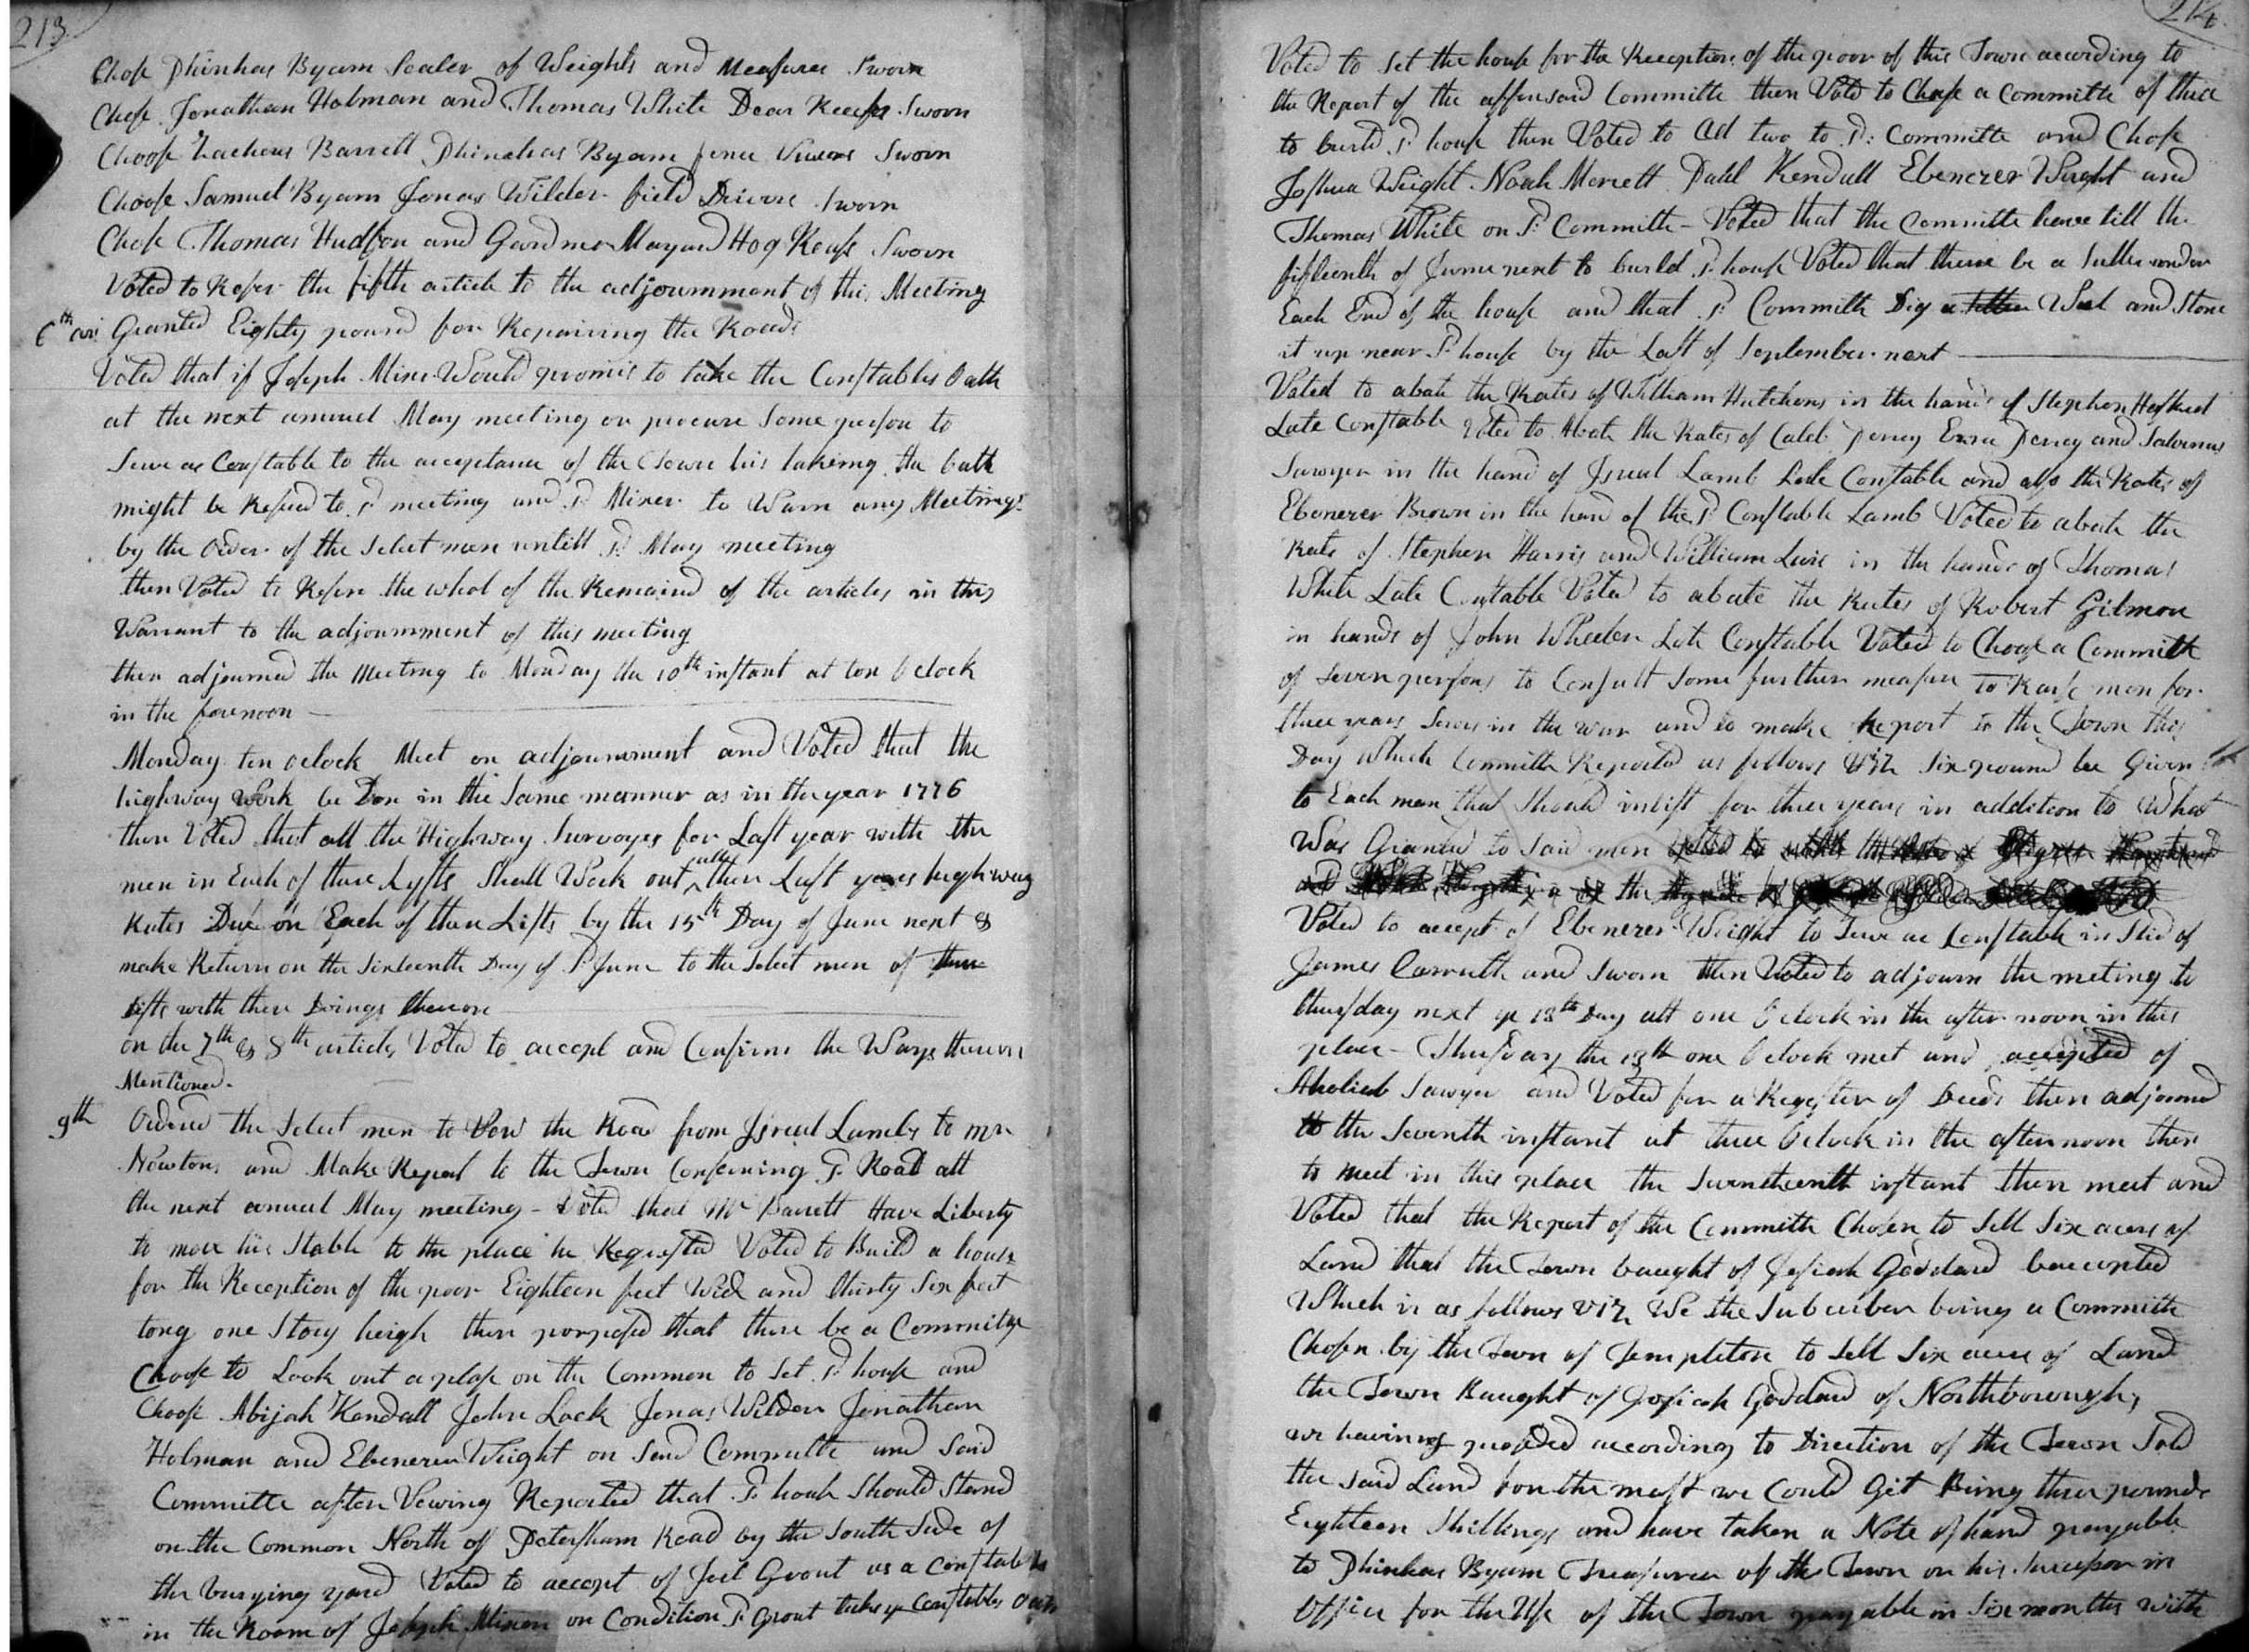 213
Chose Phinhas Byam Sealer of Weights and Measures Sworn
Chose Jonathan Holman and Thomas White Dear Keeps Sworn
Choose Zacheus Barrett Phinehas Byam fence Viewers Sworn
Choose Samuel Byam Jonas Wilder field Drivers Sworn
Chose Thomas Hudson and Gardner Mayard Hog Reafs Sworn
Voted to Refer the fifth article to the adjournment of this Meeting
6th art Granted Eighty pound for Repairing the Roads
Voted that if Joseph Mixer Would promis to take the Constables Oath
at the next annuel May meeting or procure Some person to
Serve as Constable to the acceptance of the Town his takeing the oath
might be Refered to sd meeting and sd Mixer to Warn any Meetings
by the Order of the Select men untill sd May meeting
then Voted to Refere the whol of the Remained of the articles in this
Warrant to the adjournment of this meeting
then adjourned the Meeting to Monday the 10th instant at ten Oclock
in the forenoon
Monday ten oclock Meet on adjournment and Voted that the
highway Work be Don in the Same manner as in the year 1776
then Voted that all the Highway Survoyes for Last year with the
men in Each of there Lysts Shall Work out all their Last years highway
Rates Due on Each of there Lists by the 15th Day of June next &
make Return on the Sixteenth Day of sd June to the Select men of there
Lists with there Doings thereon
on the 7th & 8th articles Voted to accept and Confirm the Ways therein
Mentioned.
9th Ordered the Select men to Vew the Road from Isreal Lambs to mr
Newtons and Make Report to the Town Conserning sd Road att
the next annuel May meeting - Voted that Mr Barrett Have Liberty
to move his Stable to the place he Requested Voted to Build a house
for the Reception of the poor Eighteen feet Wide and thirty Six feet
long one Story heigh then porposed that there be a Committe
Choose to Look out a plase on the Common to Set sd house and
Choose Abijah Kendall John Lock Jonas Wilder Jonathan
Holman and Ebenezer Wright on Said Committe and Said
Committe after Vewing Reported that sd house Should Stand
on the Common North of Petersham Road by the South Side of
the burying yard Voted to accept of Joel Grout as a Constable
in the Room of Joseph Mixer on Condition sd Grout takes ye Constables Oath
214
Voted to Set the house for the Reception of the poor of this Town according to
the Report of the affore said Committe then Voted to Chose a Committe of three
to build sd house then Voted to Ad two to sd Committe and Chose
Joshua Wright Noah Merrett Paul Kendall Ebenezer Wright and
Thomas White on sd Committe - Voted that the Committe have till the
fifteenth of June next to build sd house Voted that there be a Seller under
Each End of the house and that sd Committe Dig a Well and Stone
it up near sd house by the Last of September next
Voted to abate the Rates of William Hutchens in the hands of Stephen Hoskins
Late Constable Voted to Abate the Rates of Caleb Perrey Ezra Perrey and Salvenus
Sawyer in the hand of Isreal Lamb Late Constable and also the Rates of
Ebenezer Brown in the hand of the sd Constable Lamb Voted to abate the
Rate of Stephen Harris and William in the hands of Thomas
White Late Constable Voted to abate the Rates of Robert Gilmore
in hands of John Wheeler Late Constable Voted to Choose a Committe
of Seven persons to Consult Some further measure to Raise men for
three years Servis in the war and to make Report to the Town this
Day Which Committe Reported as follows Viz Six pound be Given
to Each man that Should inlist for three years in addition to What
Was Granted to Said men
Voted to accept of Ebenezer Wright to Serve as Constable in Stid of
James Carruth and Sworn then Voted to adjourn the meeting to
thursday next ye 13th Day att one Oclock in the after noon in this
place - Thursday the 13th one Oclock met and accepted of
Aholiab Sawyer and Voted for a Register of Deeds then adjorned
to the Seventh instant at three Oclock in the afternoon then
to meet in this place the Sevnteenth instant then meet and
Voted that the Report of the Committe Chosen to Sell Six acers of
Land that the Town baught of Josiah Goddard be accepted
Which is as follows Viz We the Subcriber being a Committe
Chosen by the Town of Templeton to Sell Six acres of Land
the Town Baught of Josiah Goddard of Northborough,
we haveing proseded according to Direction of the Town Sold
the Said Land for the most we Could Git Being three pounds
Eighteen Shillings and have taken a Note of hand payable
to Phinhas Byam Treasurer of the Town or his Sucessor in
Office for the Use of the Town payable in Six months with